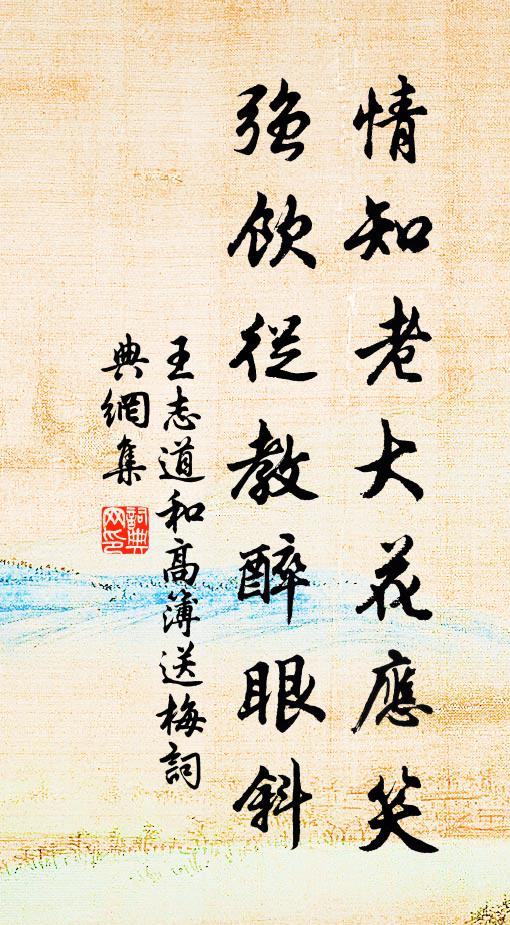 情知老大花應笑
強飲從教醉眼斜
王志道和高簿送梅詞
典網集
詞典网印